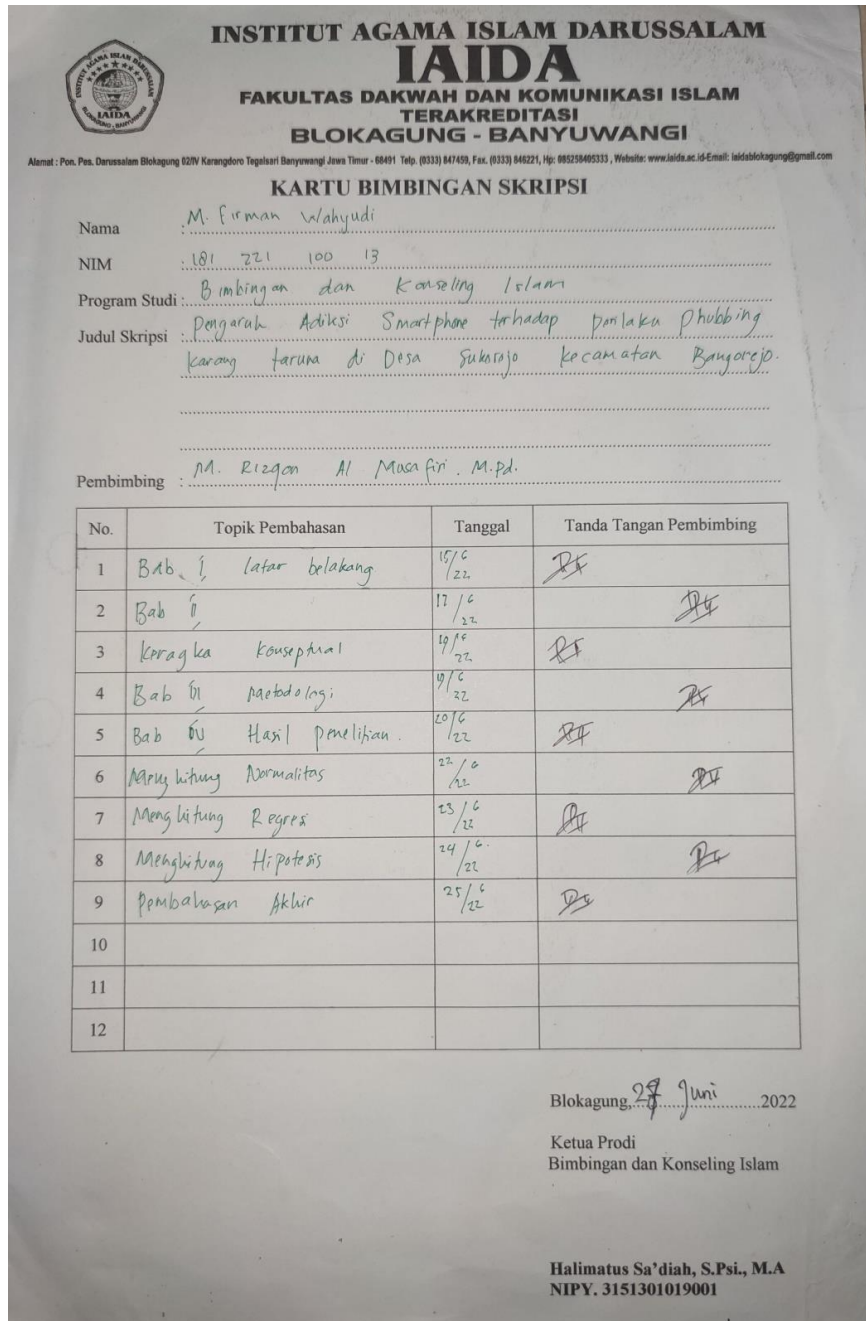 INSTITUT AGAMA ISLAM DARUSSALAM
IAIDA
FAKULTAS DAKWAH DAN KOMUNIKASI ISLAM
TERAKREDITASI
BLOKAGUNG - BANYUWANGI
INSTITUT AGAMA ISLAM DARUSSALAM
IAIDA
BLOKAGUNG - BANYUWANGI
Alamat : Pon. Pes. Darussalam Blokagung 02/IV Karangdoro Tegalsari Banyuwangi Jawa Timur - 68491 Telp. (0333) 847459, Fax. (0333) 846221, Hp: 085258405333 , Website: www.iaida.ac.id-Email: iaidablokagung@gmail.com
KARTU BIMBINGAN SKRIPSI
Nama : M. Firman Wahyudi
NIM : 181 221 100 13
Program Studi : Bimbingan dan Konseling Islam
Judul Skripsi : Pengaruh Adiksi Smartphone terhadap perilaku phubbing
karang taruna di Desa Sukorejo kecamatan Bangorejo.
Pembimbing : M. Rizqon Al Musafiri. M.Pd.
No. Topik Pembahasan Tanggal Tanda Tangan Pembimbing
1 Bab I latar belakang 15/6/22
2 Bab II 17/6/22
3 Keragka konseptual 19/6/22
4 Bab III Metodologi 19/6/22
5 Bab IV Hasil penelitian. 20/6/22
6 Menghitung Normalitas 22/6/22
7 Menghitung Regresi 23/6/22
8 Menghitung Hipotesis 24/6/22
9 Pembahasan Akhir 25/6/22
10
11
12
Blokagung, Juni 2022
Ketua Prodi
Bimbingan dan Konseling Islam
Halimatus Sa'diah, S.Psi., M.A
NIPY. 3151301019001